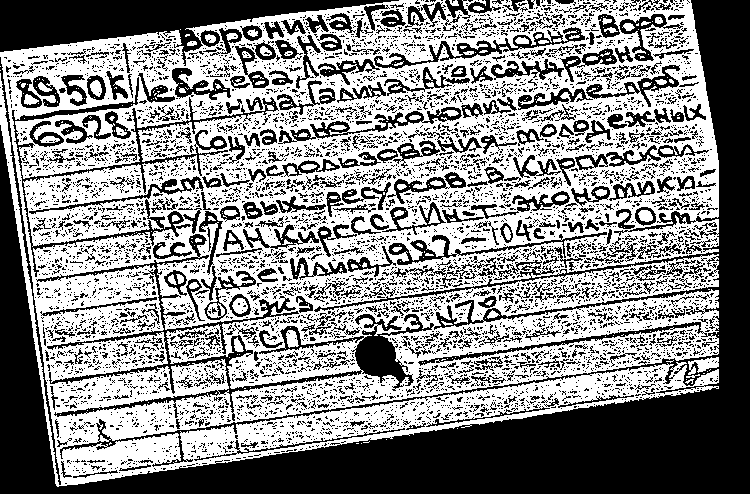 Воронина, Галина
ровна.
89-50К Лебедева, Лариса Ивановна, Воро-
6328 нина, Галина Александровна.
Социально-экономические проб-
лемы использования молодежных
трудовых ресурсов в Киргизской
ССР/АН КиргССР, Ин-т экономики.-
Фрунзе: Илим, 1987.- 104с.: ил.; 20см.
- 100 экз.
Д.СП. Экз. N78